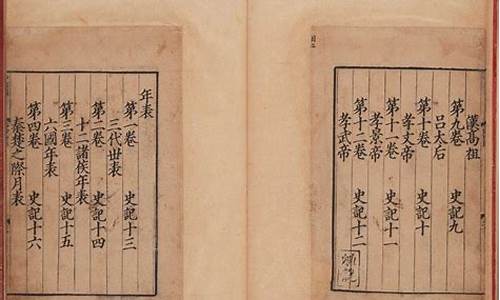 漢高祖
第九卷 史記九
呂太后
第十卷 史記十
孝文帝
第十一卷 史記十一
孝景帝
第十二卷 史記十二
孝武帝
年表
第一卷 史記十三
三代世表
第二卷 史記十四
十二諸侯年表
第三卷 史記十五
六國年表
第四卷 史記十六
秦楚之際月表